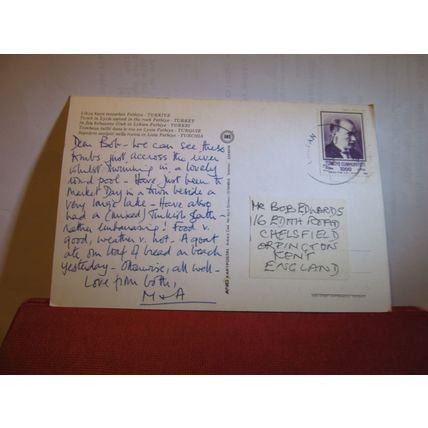 Likya Kaya mezarları Fethiye - TÜRKİYE
Tomb in Lycia carved in the rock Fethiye - TURKEY
In Fels Lykien Fethiye - TÜRKEI
Tombeau taillé dans le roc en Lycie Fethiye - TURQUIE
Fethiye - TURCHIA
Dear Bob - We can see these
tombs just across the river
whilst swimming in a lovely
pool - Have just been to
Market Day in a town beside a
very large lake - Have also
had a Turkish bath -
rather embarrassing! Food v.
good, weather v. hot - A goat
ate our loaf of bread on beach
yesterday - Otherwise, all well -
Love from both,
M & A
KARTPOSTAL
TÜRKİYE CUMHURİYETİ
1000
MR BOB EDWARDS
16 EDITH ROAD
CHELSFIELD
ORPINGTON
KENT
ENGLAND